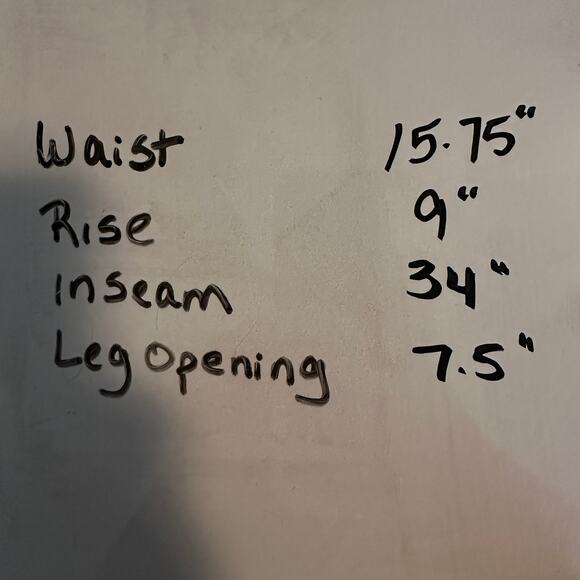 Waist 15.75"
Rise 9"
Inseam 34"
Leg Opening 7.5"